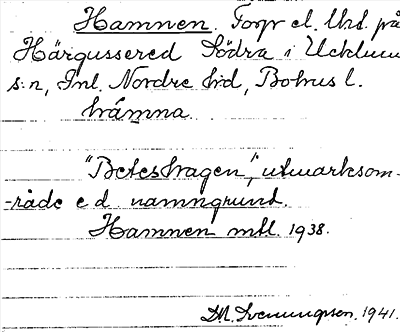 Hamnen. Torp el. lhd. på
Härgussered Södra i Ucklum
s:n, Inl. Nordre hd, Bohus l.
hámna.
"Beteshagen", utmarksom-
-råde e d namngrund.
Hamnen mtl. 1938.
D.M. Svenungsson. 1941.